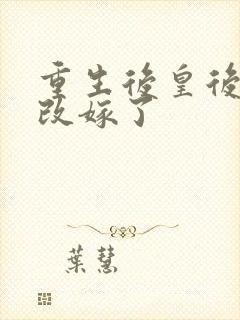 重生後皇後
改嫁了
葉慧